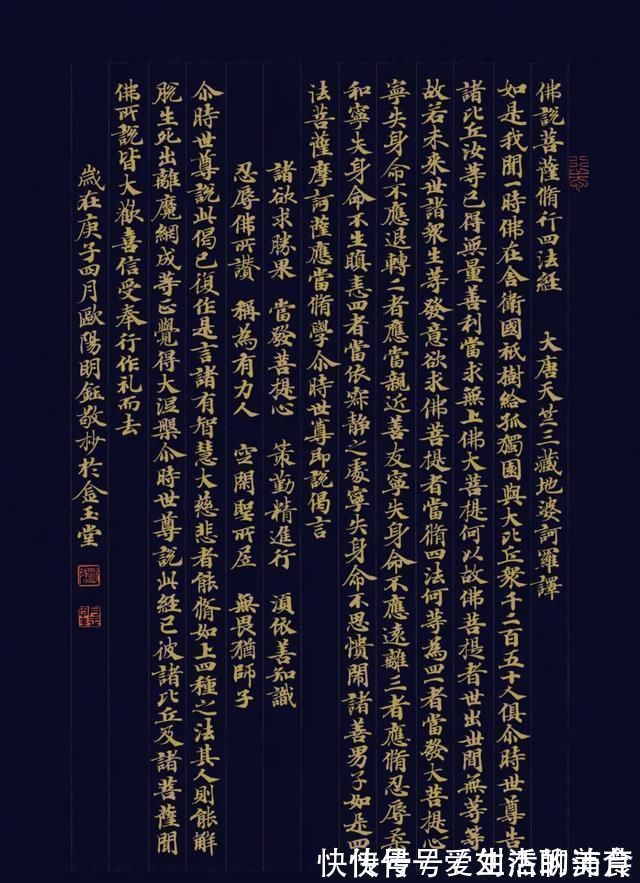 佛說菩薩脩行四法經 大唐天竺三藏地婆訶羅譯
如是我聞一時佛在舍衛國祇樹給孤獨園與大比丘衆千二百五十人俱尒時世尊告
諸比丘汝等已得無量善利當求無上佛大菩提何以故佛菩提者世出世間無等等
故若未來世諸衆生等發意欲求佛菩提者當脩四法何等為四一者當發大菩提心
寧失身命不應退轉二者應當親近善友寧失身命不應遠離三者應脩忍辱柔
和寧失身命不生瞋恚四者當依寂静之處寧失身命不思憒閙諸善男子如是四
法菩薩摩訶薩應當脩學尒時世尊即說偈言
諸欲求勝果 當發菩提心 策勤精進行 須依善知識
忍辱佛所讚 稱為有力人 空閑聖所居 無畏猶師子
尒時世尊說此偈已復作是言諸有智慧大慈悲者能脩如上四種之法其人則能解
脫生死出離魔網成等正覺得大涅槃尒時世尊說此經已彼諸比丘及諸菩薩聞
佛所說皆大歡喜信受奉行作礼而去
歲在庚子四月歐陽明鈺敬抄於金玉堂